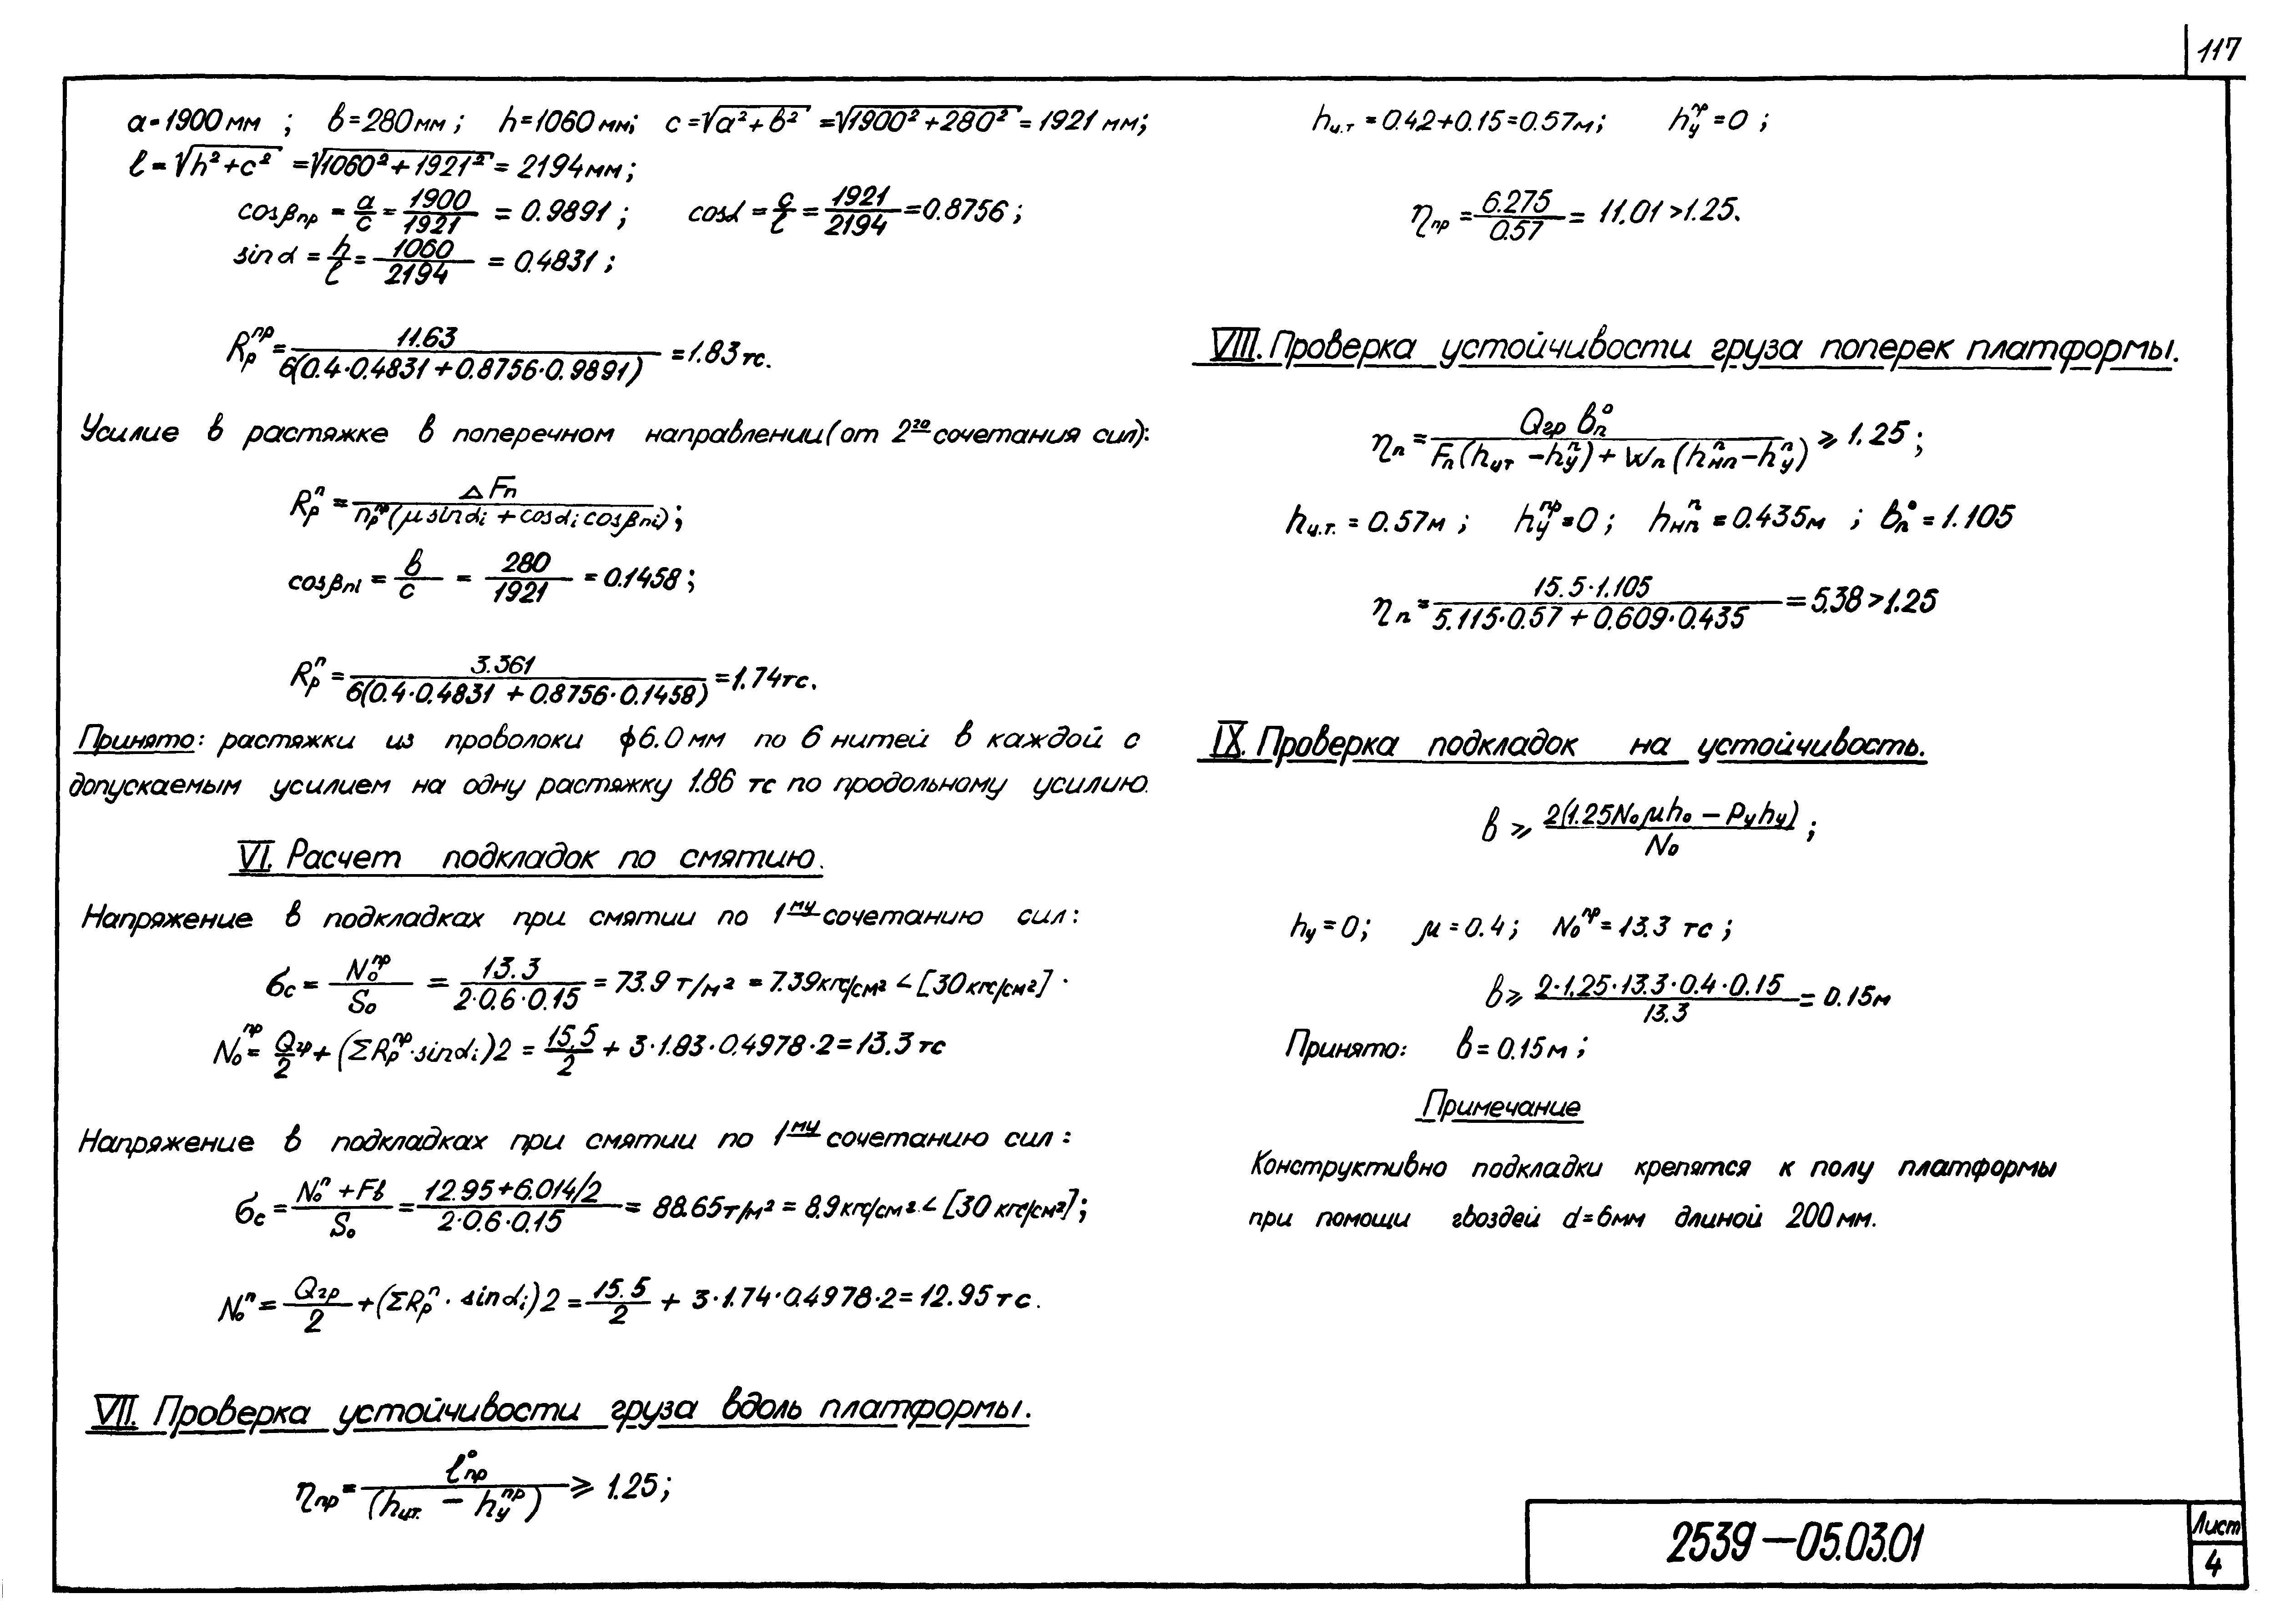 117
a=1900мм ; в=280мм ; h=1060мм; c=√(a²+в²) =√(1900²+280²)=1921 мм;
ℓ=√(h²+c²) =√(1060²+1921²)= 2194мм;
cosβпр = a/c = 1900/1921 = 0.9891 ; cosα = c/ℓ = 1921/2194 =0.8756 ;
sin α = h/ℓ = 1060/2194 = 0.4831 ;
Rр^пр = 11.63/6(0.4·0.4831+0.8756·0.9891) =1.83тс.
Усилие в растяжке в поперечном направлении(от 2го сочетания сил):
Rр^п = ΔFп/nр^пр(μ sinαi + cosαi cosβпi) ;
cosβпi = в/c = 280/1921 = 0.1458 ;
Rр^п = 3.361/6(0.4·0.4831 +0.8756·0.1458) =1.74тс.
Принято: растяжки из проволоки ϕ6.0мм по 6 нитей в каждой с
допускаемым усилием на одну растяжку 1.86 тс по продольному усилию.
VI. Расчет подкладок по смятию.
Напряжение в подкладках при смятии по 1му сочетанию сил:
σс = N₀^пр/S₀ = 13.3/2·0.6·0.15 = 73.9 т/м² = 7.39кгс/см² < [30кгс/см²] .
N₀^пр = Qгр/2 + (ΣRр^пр·sinαi)2 = 15.5/2 + 3·1.83·0.4978·2=13.3тс
Напряжение в подкладках при смятии по 1му сочетанию сил:
σс = N₀^п +Fв/S₀ = 12.95+6.014/2/2·0.6·0.15 = 88.65т/м² = 8.9кгс/см² < [30 кгс/см²];
N₀^п = Qгр/2 +(ΣRр^п· sinαi)2 = 15.5/2 + 3·1.74·0.4978·2=12.95тс.
VII. Проверка устойчивости груза вдоль платформы.
ηпр = ℓ°пр/(hцт. − hу^пр) ⩾ 1.25 ;
hц.т = 0.42+0.15=0.57м; hу^пр =0 ;
ηпр = 6.275/0.57 = 11.01 >1.25.
VIII. Проверка устойчивости груза поперек платформы.
ηп = Qгр вп°/Fп(hцт −hу^п)+Wп(hнп^п−hу^п) ⩾ 1.25 ;
hц.т. = 0.57м ; hу^пр=0 ; hнп^п = 0.435м ; вп° = 1.105
ηп = 15.5·1.105/5.115·0.57 + 0.609·0.435 = 5.38 >1.25
IX. Проверка подкладок на устойчивость.
в ⩾ 2(1.25N₀μh₀ − Pуhу)/N₀ ;
hу=0; μ=0.4; N₀^пр=13.3 тс ;
в⩾ 2·1.25·13.3·0.4·0.15/13.3 = 0.15м
Принято: в=0.15м ;
Примечание
Конструктивно подкладки крепятся к полу платформы
при помощи гвоздей d=6мм длиной 200мм.
2539—05.03.01
Лист
4